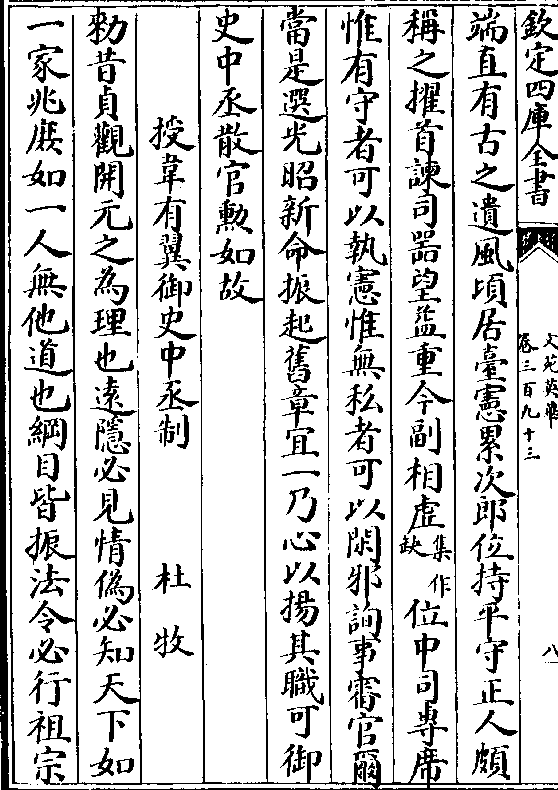 欽定四庫全書
文苑英華
卷三百九十三
八
端直有古之遺風頃居臺憲累次郎位持平守正人頗
稱之擢首諫司器望益重今副相虛集作缺位中司專席
惟有守者可以執憲惟無私者可以閑邪詢事審官爾
當是選光昭新命振起舊章宜一乃心以揚其職可御
史中丞散官勲如故
授韋有翼御史中丞制 杜牧
勅昔貞觀開元之為理也遠隱必見情偽必知天下如
一家兆庶如一人無他道也綱目皆振法令必行祖宗